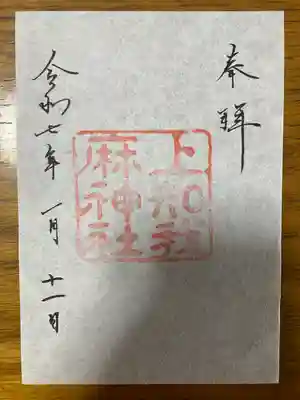 奉拝
上知我
麻神社
令和七年 一月 十一日